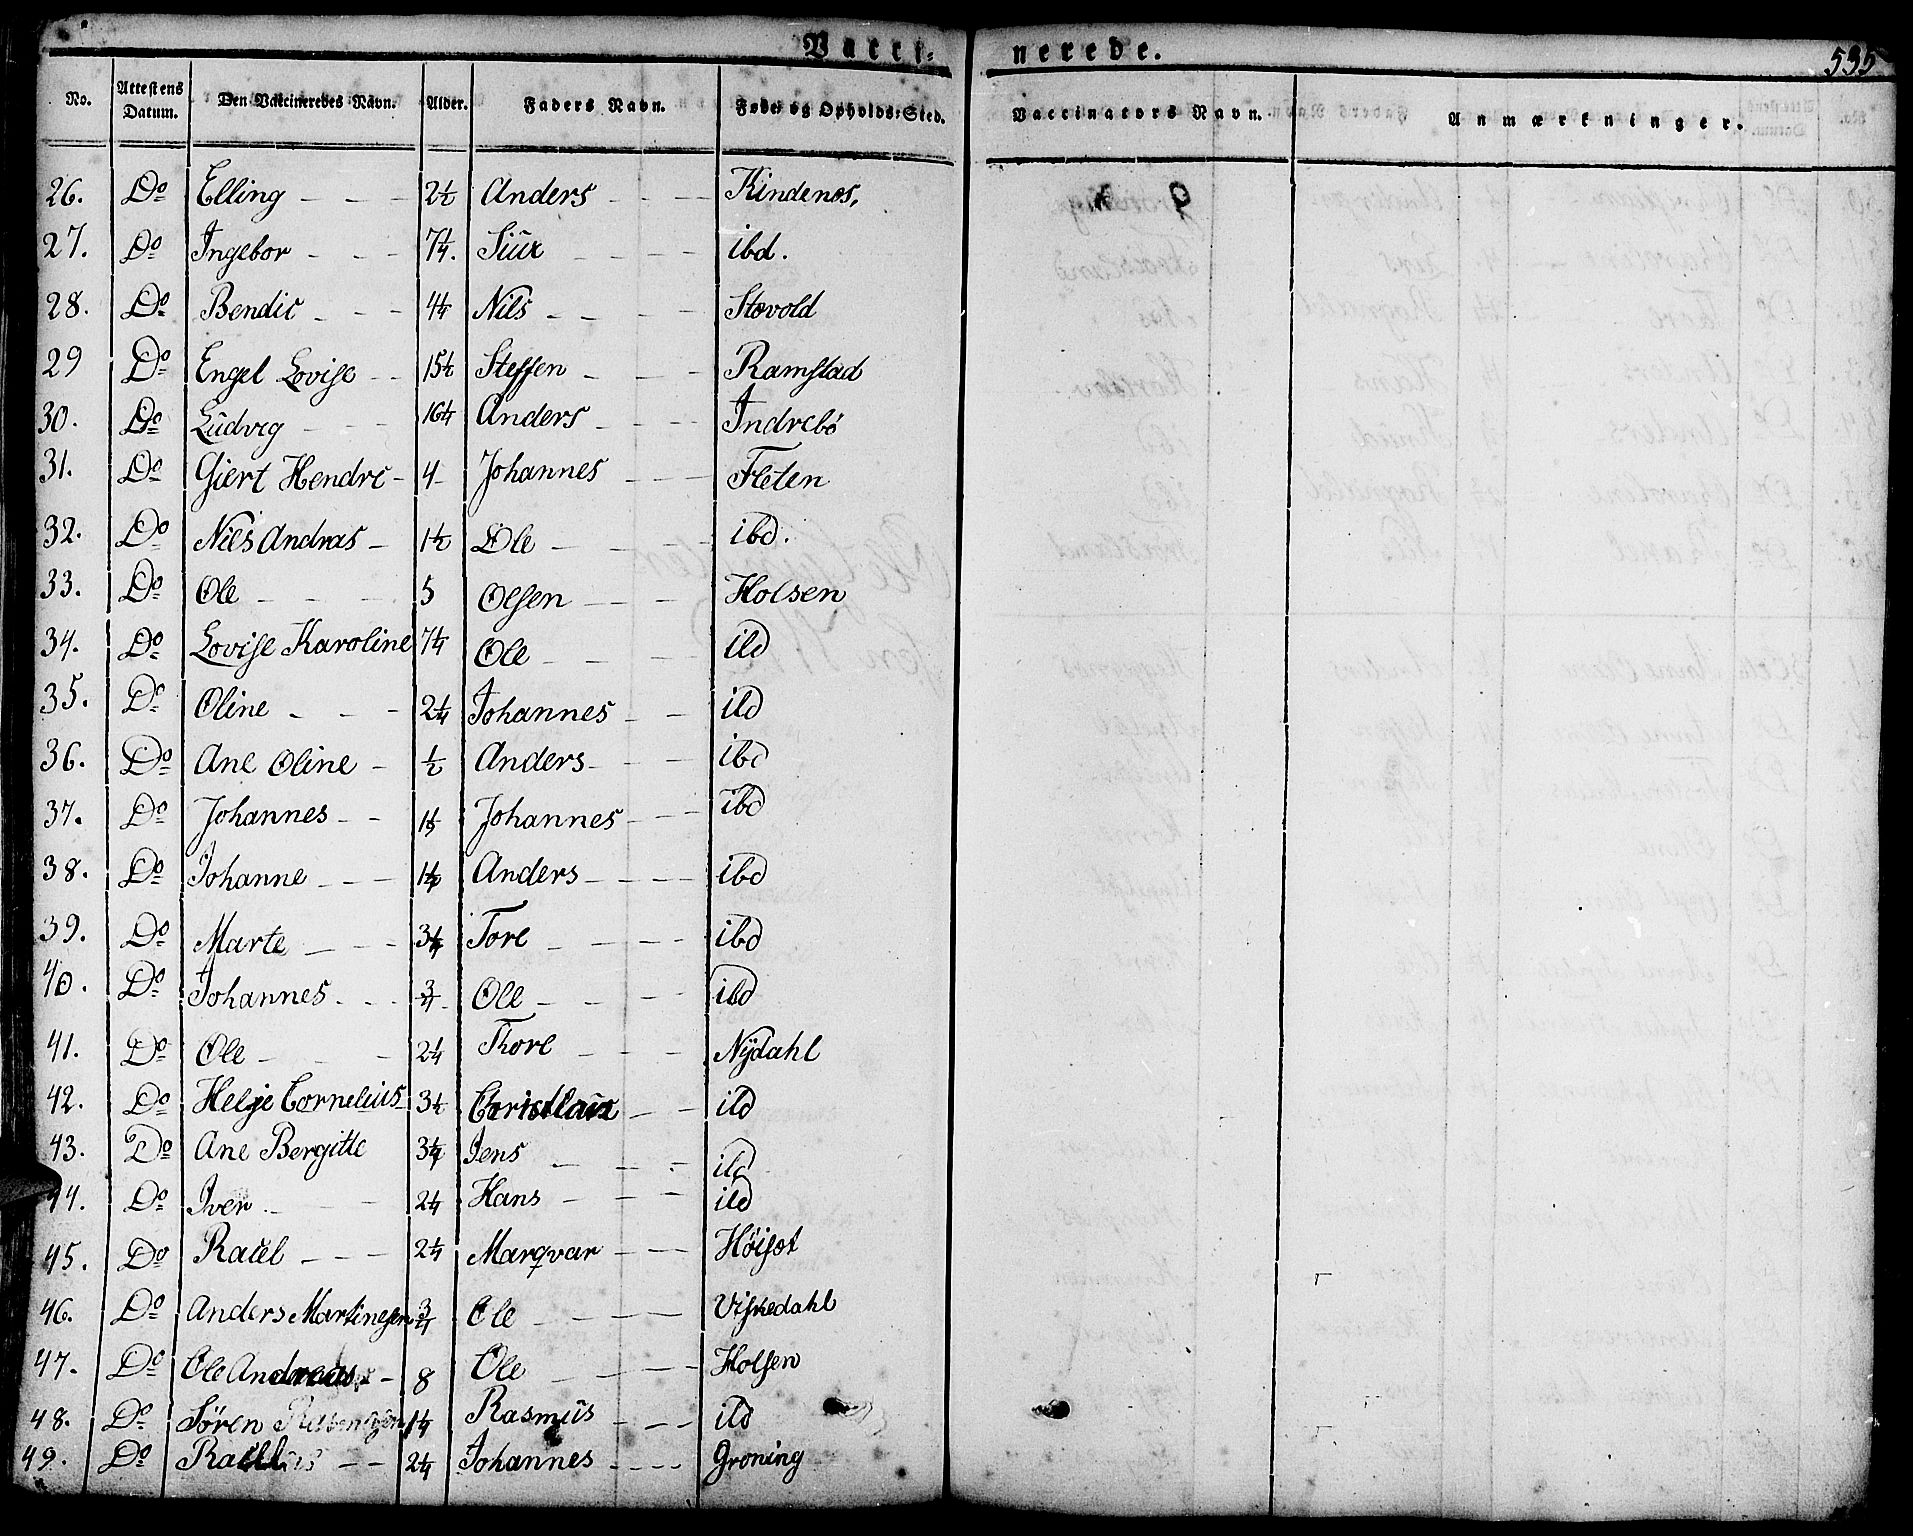 Vacci-nerede. 535
No. Attestens Datum. Den Vaccineredes Navn. Alder. Faders Navn. Føde og Opholds-Sted. Vaccinators Navn. Anmærkninger.
26. Do Elling - - - 2½ Anders - - - - Kindenos,
27. Do Ingebor - - - 7¼. Siur - - - - ibd.
28. Do Bendic - - - 4¼ Nils - - - - Stovold
29 Do Engel Lovise - - 15½ Steffen - - - Ramstad
30. Do Ludvig - - - 16¼ Anders - - - Indrebö
31. Do Giert Hendri - 4 - Johannes - - - Fleten
32. Do Nils Andras - 1½ Ole - - - - ibd.
33. Do Ole - - - 5 Olsen - - - Holsen
34. Do Lovise Karoline 7¼ Ole - - - ibd
35. Do Oline - - - 2¼ Johannes - - ibd
36. Do Ane Oline - ½ Anders - - - ibd
37. Do Johannes - - 1½ Johannes - - - ibd
38. Do Johanne - - - 1½ Anders - - - - ibd
39. Do Marte - - - 3¼ Tore - - - - ibd
40. Do Johannes - - - ¾ Ole - - - - ibd
41. Do Ole - - - 2¼ Thore - - - Nÿdahl
42. Do Helje Cornelius 3½ - - ibd
43. Do Ane Bergitte 3¼ Jens - - - ibd
44. Do Iver - - - 2¼ Hans - - - ibd
45. Do Rael - - - 2¼ Marqvar - - - Höisæt
46. Do Anders Martinesen ¾ Ole - - - - Viskedahl
47. Do Ole Andreas - 8 Ole - - - - Holsen
48. Do Søren 1¼ Rasmus - - - ibd
49. Do - - 2¼ Johannes - - - - Groning